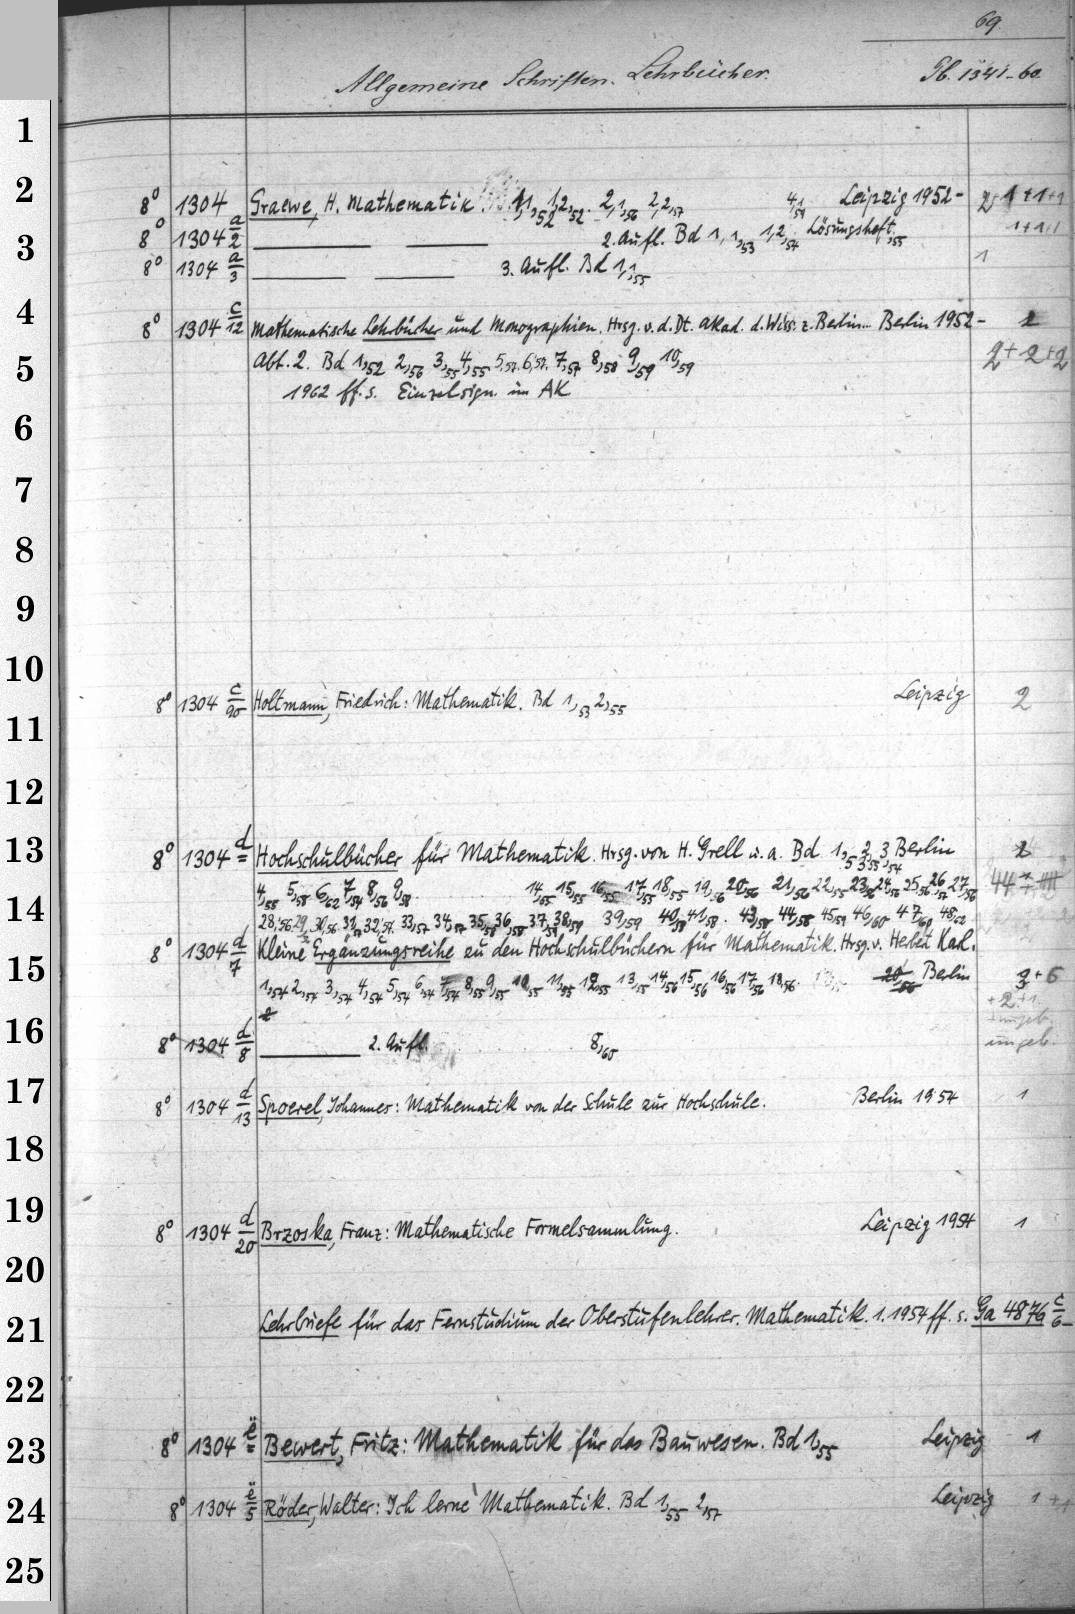 69.
Allgemeine Schriften. Lehrbücher. Pb. 1341-60.
1
2
8° 1304 Graewe, H. Mathematik. 1,1,52 1,2,52. 2,1,56 2,2,57 4,1,54 Leipzig 1952- 2+1+1+1
8° 1304 a/2 2. Aufl. Bd 1,1,53 1,2,54 Lösungsheft,55 1+1+1
3
8° 1304 a/3 3. Aufl. Bd 1,1,55 1
4
8° 1304 c/12 Mathematische Lehrbücher und Monographien. Hrsg. v. d. Dt. Akad. d. Wiss. z. Berlin... Berlin 1952- 2
5
Abt. 2. Bd 1,52 2,56 3,55 4,55 5,57. 6,57. 7,57 8,58 9,59 10,59 2+2+2
1962 ff. s. Einzelsign. im AK
6
7
8
9
10
8° 1304 c/90 Holtmann, Friedrich: Mathematik. Bd 1,53 2,55 Leipzig 2
11
12
13
8° 1304 d Hochschulbücher für Mathematik. Hrsg. von H. Grell u. a. Bd 1,53 2,55 3,54 Berlin 2
4,55 5,58 6,62 7,54 8,56 9,58 14,55 15,55 16,55 17,55 18,55 19,56 20,56 21,56 22,55 23,56 24,56 25,56 26,57 27,56
14
28,56 29, 30,56 31,57 32,57. 33,57 34,57 35,58 36,58 37,59 38,59 39,59 40,58 41,58. 43,58 44,58 45,59 46,60 47,60 48,62
8° 1304 d/7 Kleine Ergänzungsreihe zu den Hochschulbüchern für Mathematik. Hrsg. v. Herbert Karl.
15
1,54 2,54 3,54 4,54 5,54 6,54 7,54 8,55 9,55 10,55 11,55 12,55 13,55 14,56 15,56 16,56 17,56 18,56. 20,56 Berlin 3+6
+2+1
16
8° 1304 d/8 2. Aufl. 8,60 ungeb.
17
8° 1304 d/13 Spoerel, Johannes: Mathematik von der Schule zur Hochschule. Berlin 1954 1
18
19
8° 1304 d/20 Brzoska, Franz: Mathematische Formelsammlung. Leipzig 1954 1
20
21
Lehrbriefe für das Fernstudium der Oberstufenlehrer. Mathematik. 1. 1954 ff. s. Ga 4876 c/6
22
23
8° 1304 ë Bewert, Fritz: Mathematik für das Bauwesen. Bd 1,55 Leipzig 1
24
8° 1304 ë/5 Röder, Walter: Ich lerne Mathematik. Bd 1,55 2,57 Leipzig 1+1
25